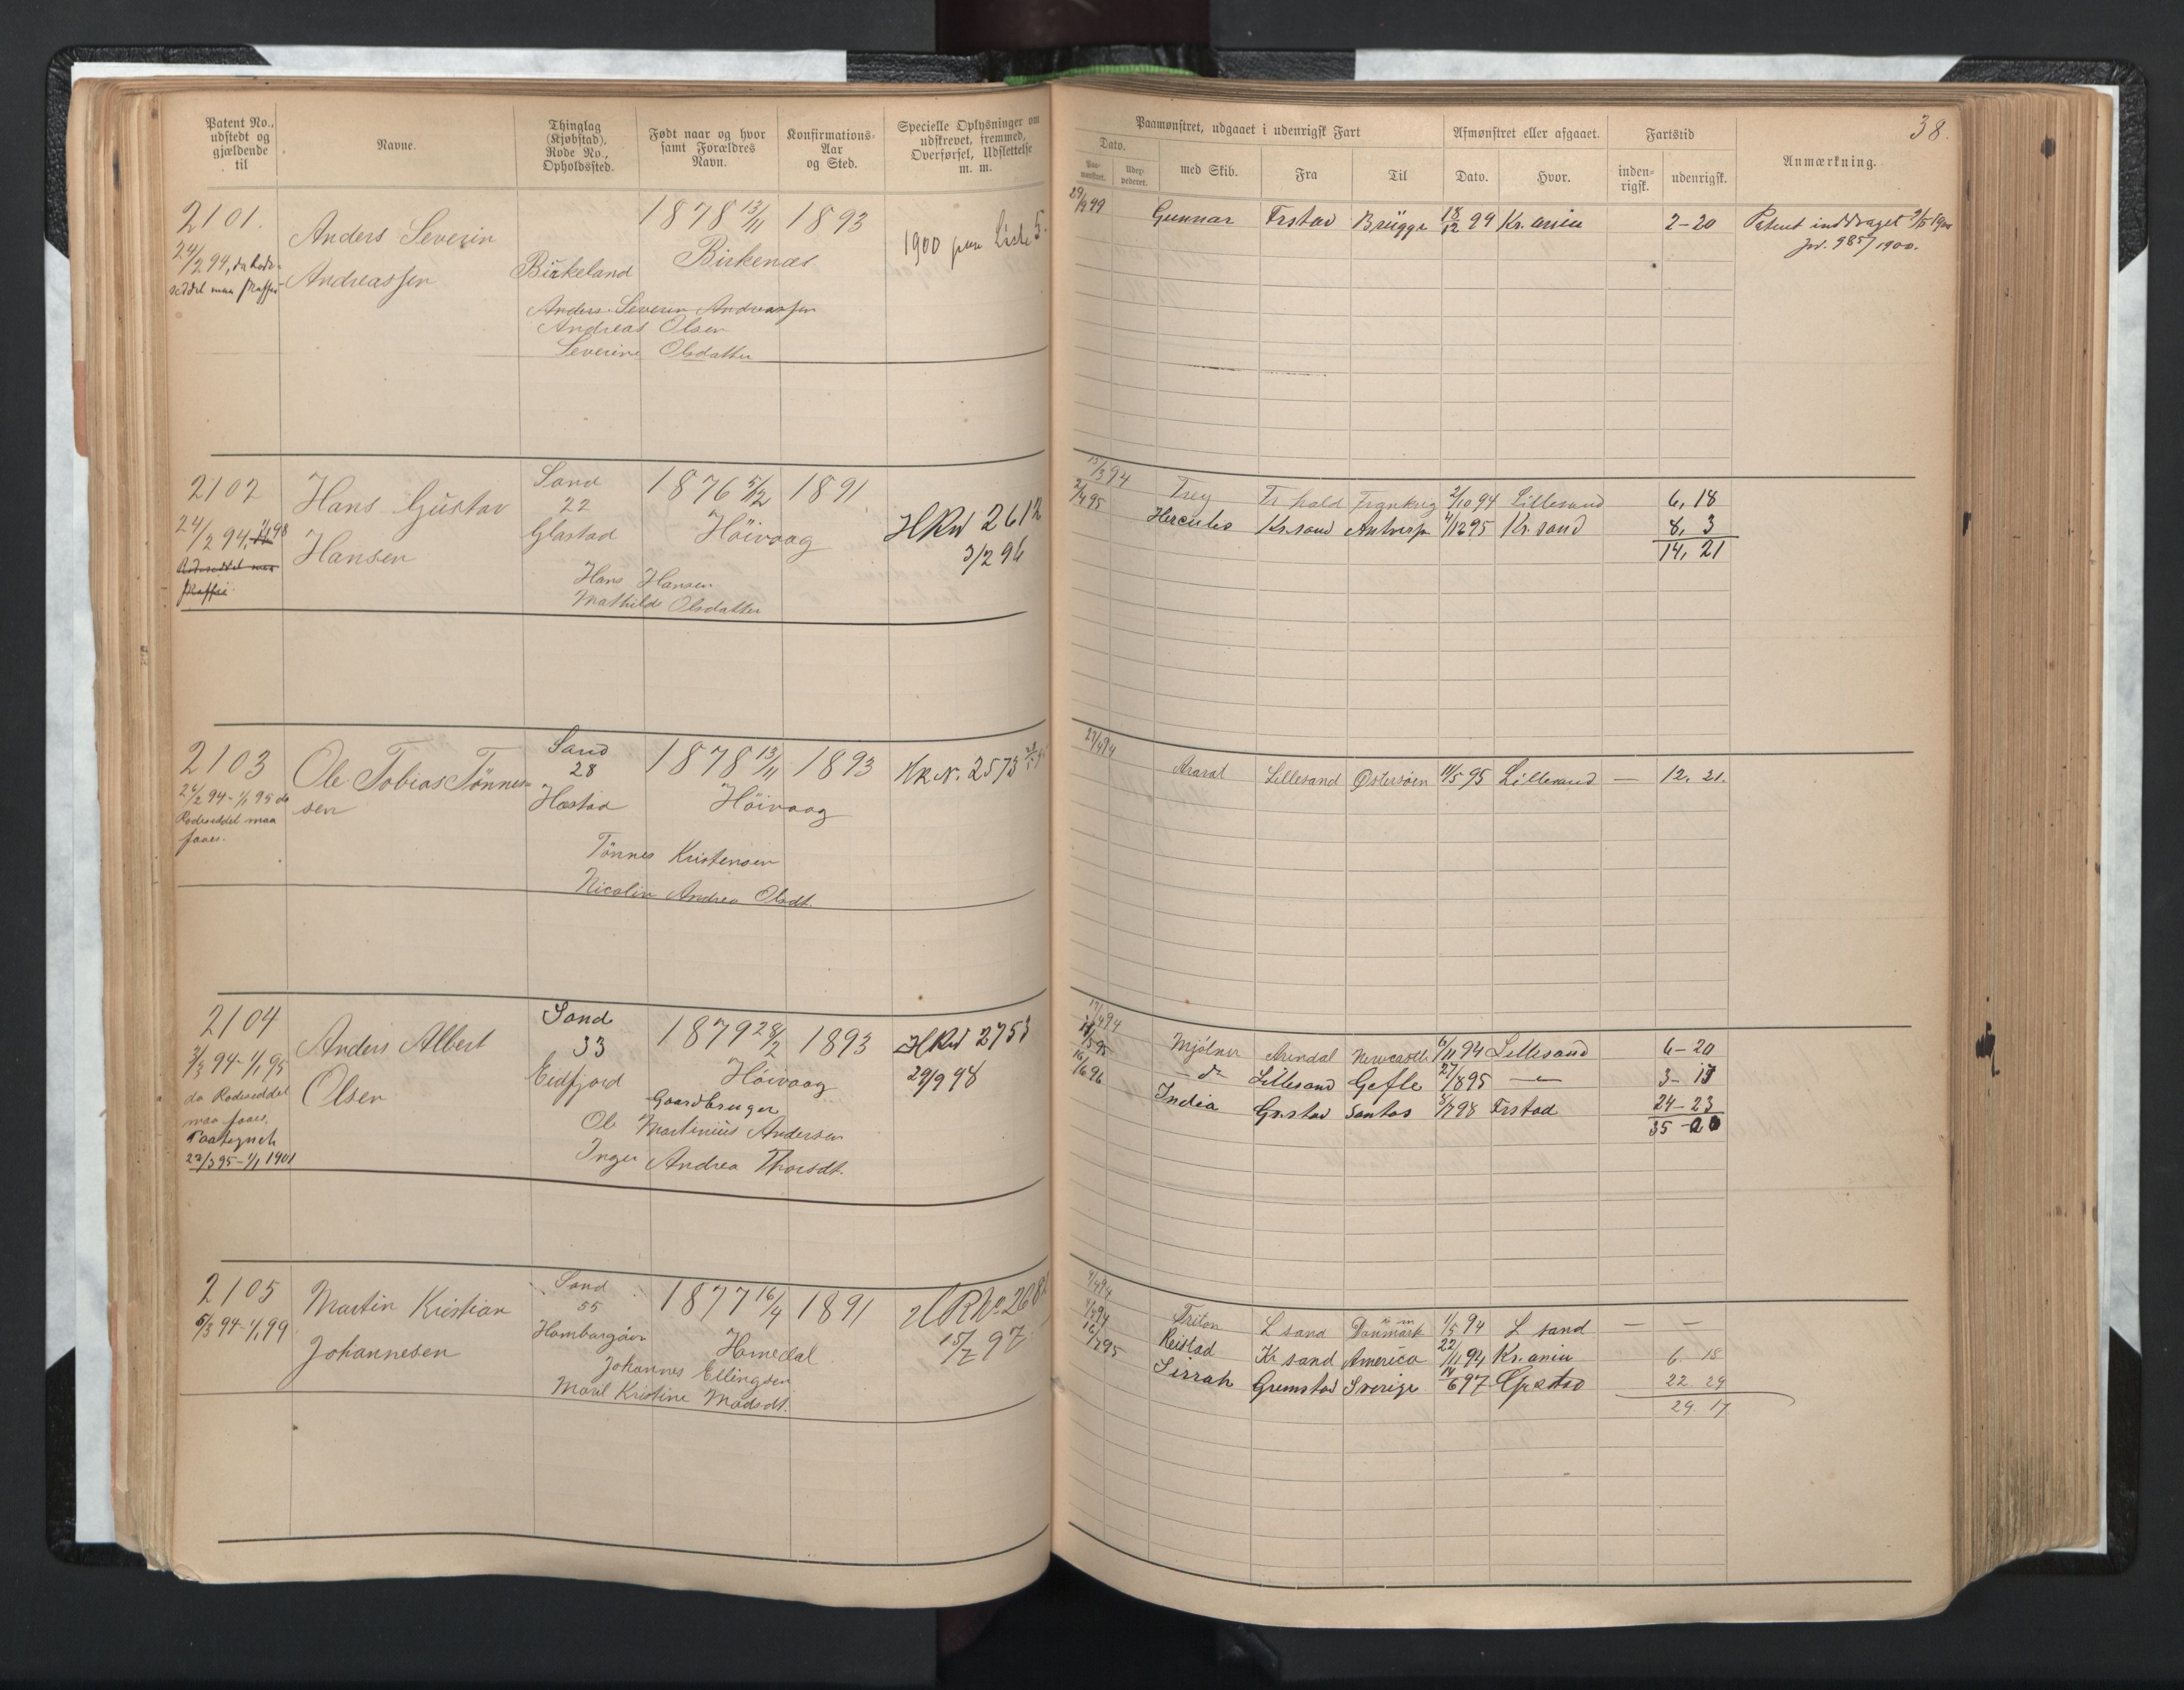 Patent No., udstedt og gjældende til
Navne.
Thinglag (Kjøbstad), Rode No., Opholdssted.
Født naar og hvor samt Forældres Navn.
Konfirmations-Aar og Sted.
Specielle Oplysninger om udskrevet, fremmed, Overførsel, Udslettelse m. m.
2101.
24/2 94, da Rode-
seddel maa skaffes
Anders Severin
Andreassen
Birkeland
1878 13/11
Birkenæs
1893
1900 paa Liste 5.
Anders Severin Andreassen
Andreas Olsen
Severine Olsdatter
2102
24/2 94, 1/1 98
Rodeseddel maa
skaffes
Hans Gustav
Hansen
Sand
22
Glastad
1876 5/2
Höivaag
1891
HRN 2612
3/2 96
Hans Hansen
Mathilde Olsdatter
2103
26/2 94 - 1/1 95 da
Rodeseddel maa
faaes.
Ole Tobias Tönnes-
sen
Sand
28
Hæstad
1878 13/11
Höivaag
1893
HRN. 2573
Tönnes Kristensen
Nicoline Andrea Olsdt.
2104
3/3 94 - 1/1 95
da Rodeseddel
maa faaes.
Paategnet
22/3 95 - 1/1 1901
Anders Albert
Olsen
Sand
33
Eidfjord
1879 28/2
Höivaag
1893
HRN 2753
29/9 98
Gaardbruger
Ole Martinius Andersen
Inger Andrea Thorsdt.
2105
5/3 94 - 1/1 99
Martin Kristian
Johannesen
Sand
55
1877 16/4
Homedal
1891
HRNo 268
15/7 97
Johannes Ellingsen
Maril Kristine Madsdt.
38.
Paamønstret, udgaaet i udenrigsk Fart
Afmønstret eller afgaaet.
Fartstid
Anmærkning.
Dato.
Paa-mønstret.
Udex-pederet.
med Skib.
Fra
Til
Dato.
Hvor.
inden-rigsk.
udenrigsk.
29/9 99 Gunnar Frstad Brügge 18/12 99 Kr.ania 2-20 Patent inddraget 9/5 1900
jr. 985/1900.
13/3 94 Frey Fr.hald Frankrig 2/10 94 Lillesand 6, 18
2/4 95 Hercules Kr.sand Antwerp 4/12 95 Kr.sand 8, 3
14, 21
27/4 94 Ararat Lillesand Östersöen 11/5 95 Lillesand — 12. 21.
17/4 94 Mjölner Arendal Newcastle 6/11 94 Lillesand 6-20
11/5 95 - do - Lillesand Gefle 27/8 95 — 3-13
16/6 96 India Gr.stad Santos 8/7 98 Frstad 24-23
35-20
9/4 94 Triton L sand Danmark 1/5 94 L sand — —
Reistad Kr sand America 22/11 94 Kr.ania 6. 18
16/7 95 Sirrah Grimstad Sverige 14/6 97 Grstad 22. 29
29. 17